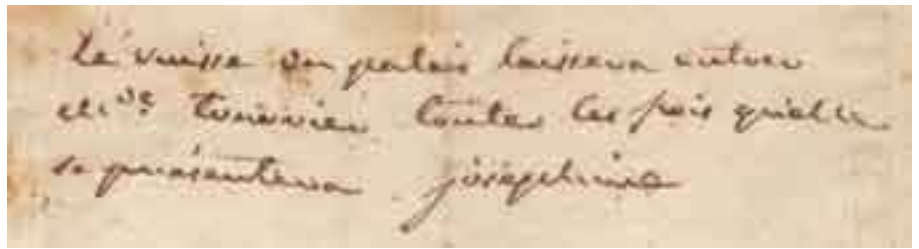 le suisse du palais laissera entrer
Mde tournier toutes les fois quielle
se présentera joséphine